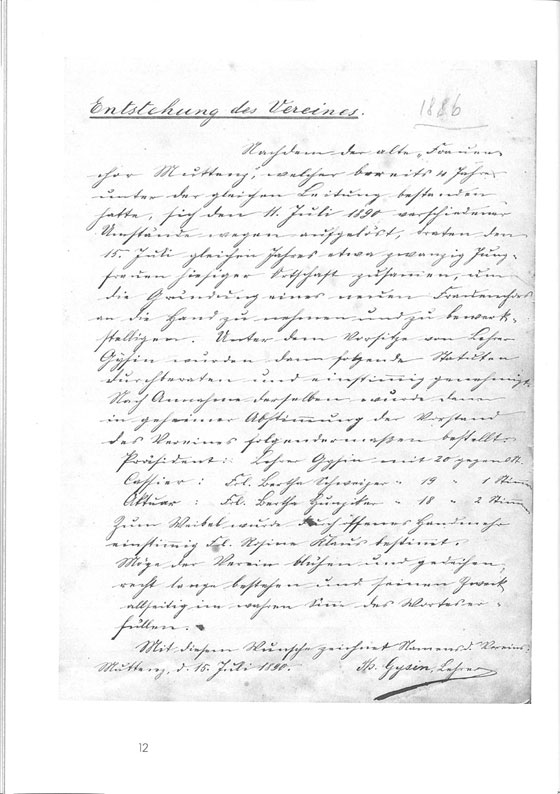 Entstehung des Vereines. 1886
Nachdem der alte „Frauen-
chor Muttenz", welcher bereits 4 Jahre
unter der gleichen Leitung bestanden
hatte, sich den 11. Juli 1890 verschiedener
Umstände wegen aufgelöst, traten den
15. Juli gleichen Jahres etwa zwanzig Jung-
frauen hiesiger Ortschaft zusamen, um
die Gründung eines neuen Frauenchores
an die Hand zu nehmen und zu bewerk-
stelligen. Unter dem Vorsitze von Lehrer
Gysin wurden dann folgende Statuten
durchberaten und einstimmig genehmigt.
Nach Annahme derselben wurde dann
in geheimer Abstimmung der Vorstand
des Vereines folgendermassen bestellt:
Präsident: Lehrer Gysin mit 20 gegen 0 St.
Cassier: Frl. Bertha Schweizer " 19 " 1 Stimme
Aktuar: Frl. Bertha Hunziker " 18 " 2 Stimm.
Zum Weibel wurde durch offenes Handmehr
einstimmig Frl. Rosine Klaus bestimt.
Möge der Verein blühen und gedeihen,
recht lange bestehen und seinen Zweck
allseitig im wahren Sinn des Wortes er-
füllen.
Mit diesem Wunsche zeichnet Namens d. Vereins
Muttenz, d. 15. Juli 1890. Gysin, Lehrer
12